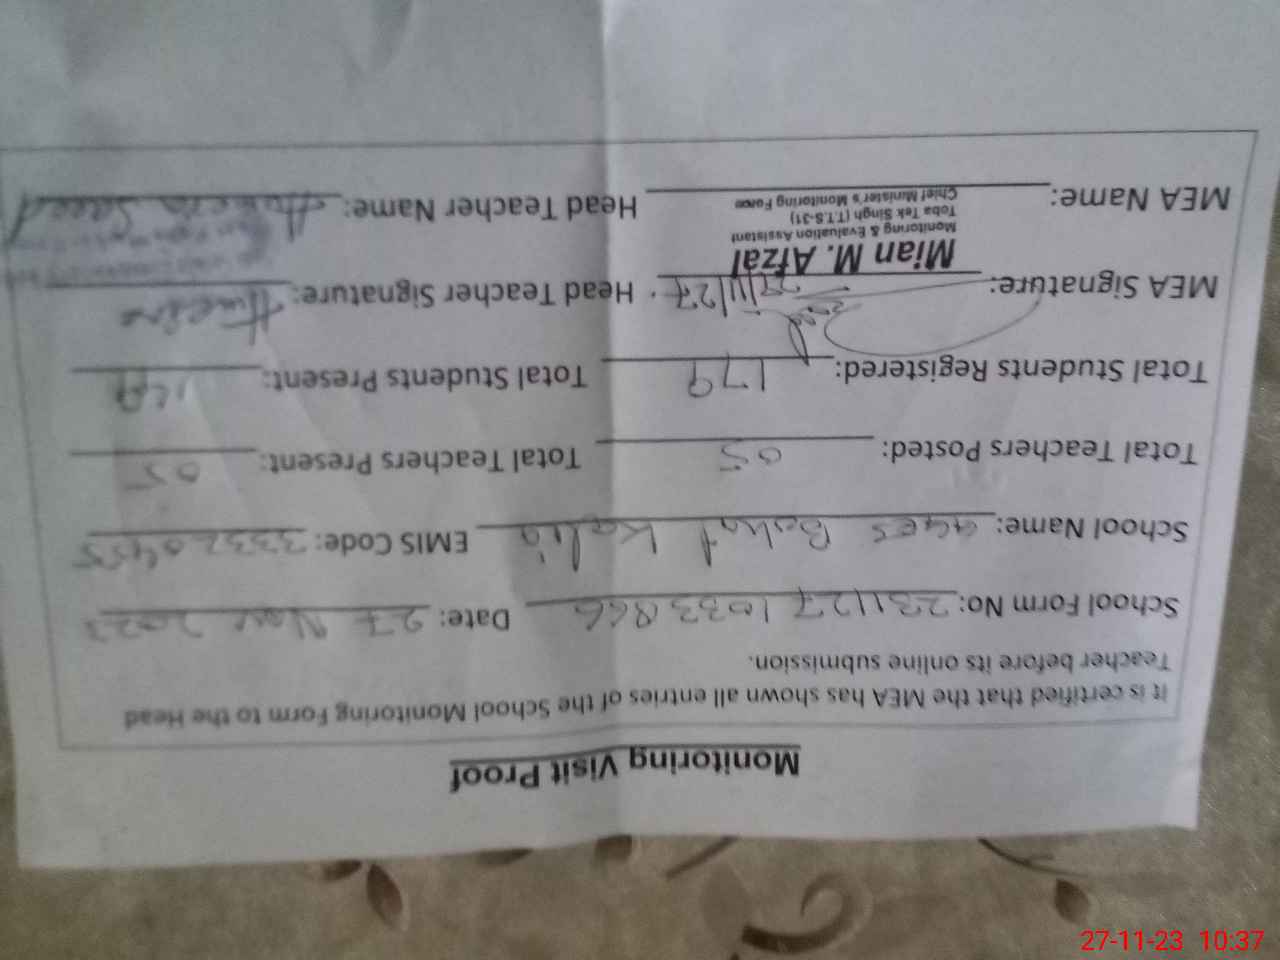 Monitoring Visit Proof
It is certified that the MEA has shown all entries of the School Monitoring Form to the Head
Teacher before its online submission.
School Form No: 2311271033866 Date: 27 Nov 2023
School Name: GGES Kalia EMIS Code:
Total Teachers Posted: 05 Total Teachers Present: 05
Total Students Registered: 179 Total Students Present:
MEA Signature: Head Teacher Signature:
Mian M. Afzal
Monitoring & Evaluation Assistant
Toba Tek Singh (T.T.S-31)
Chief Minister's Monitoring Force
MEA Name: Head Teacher Name: Saeed
27-11-23 10:37